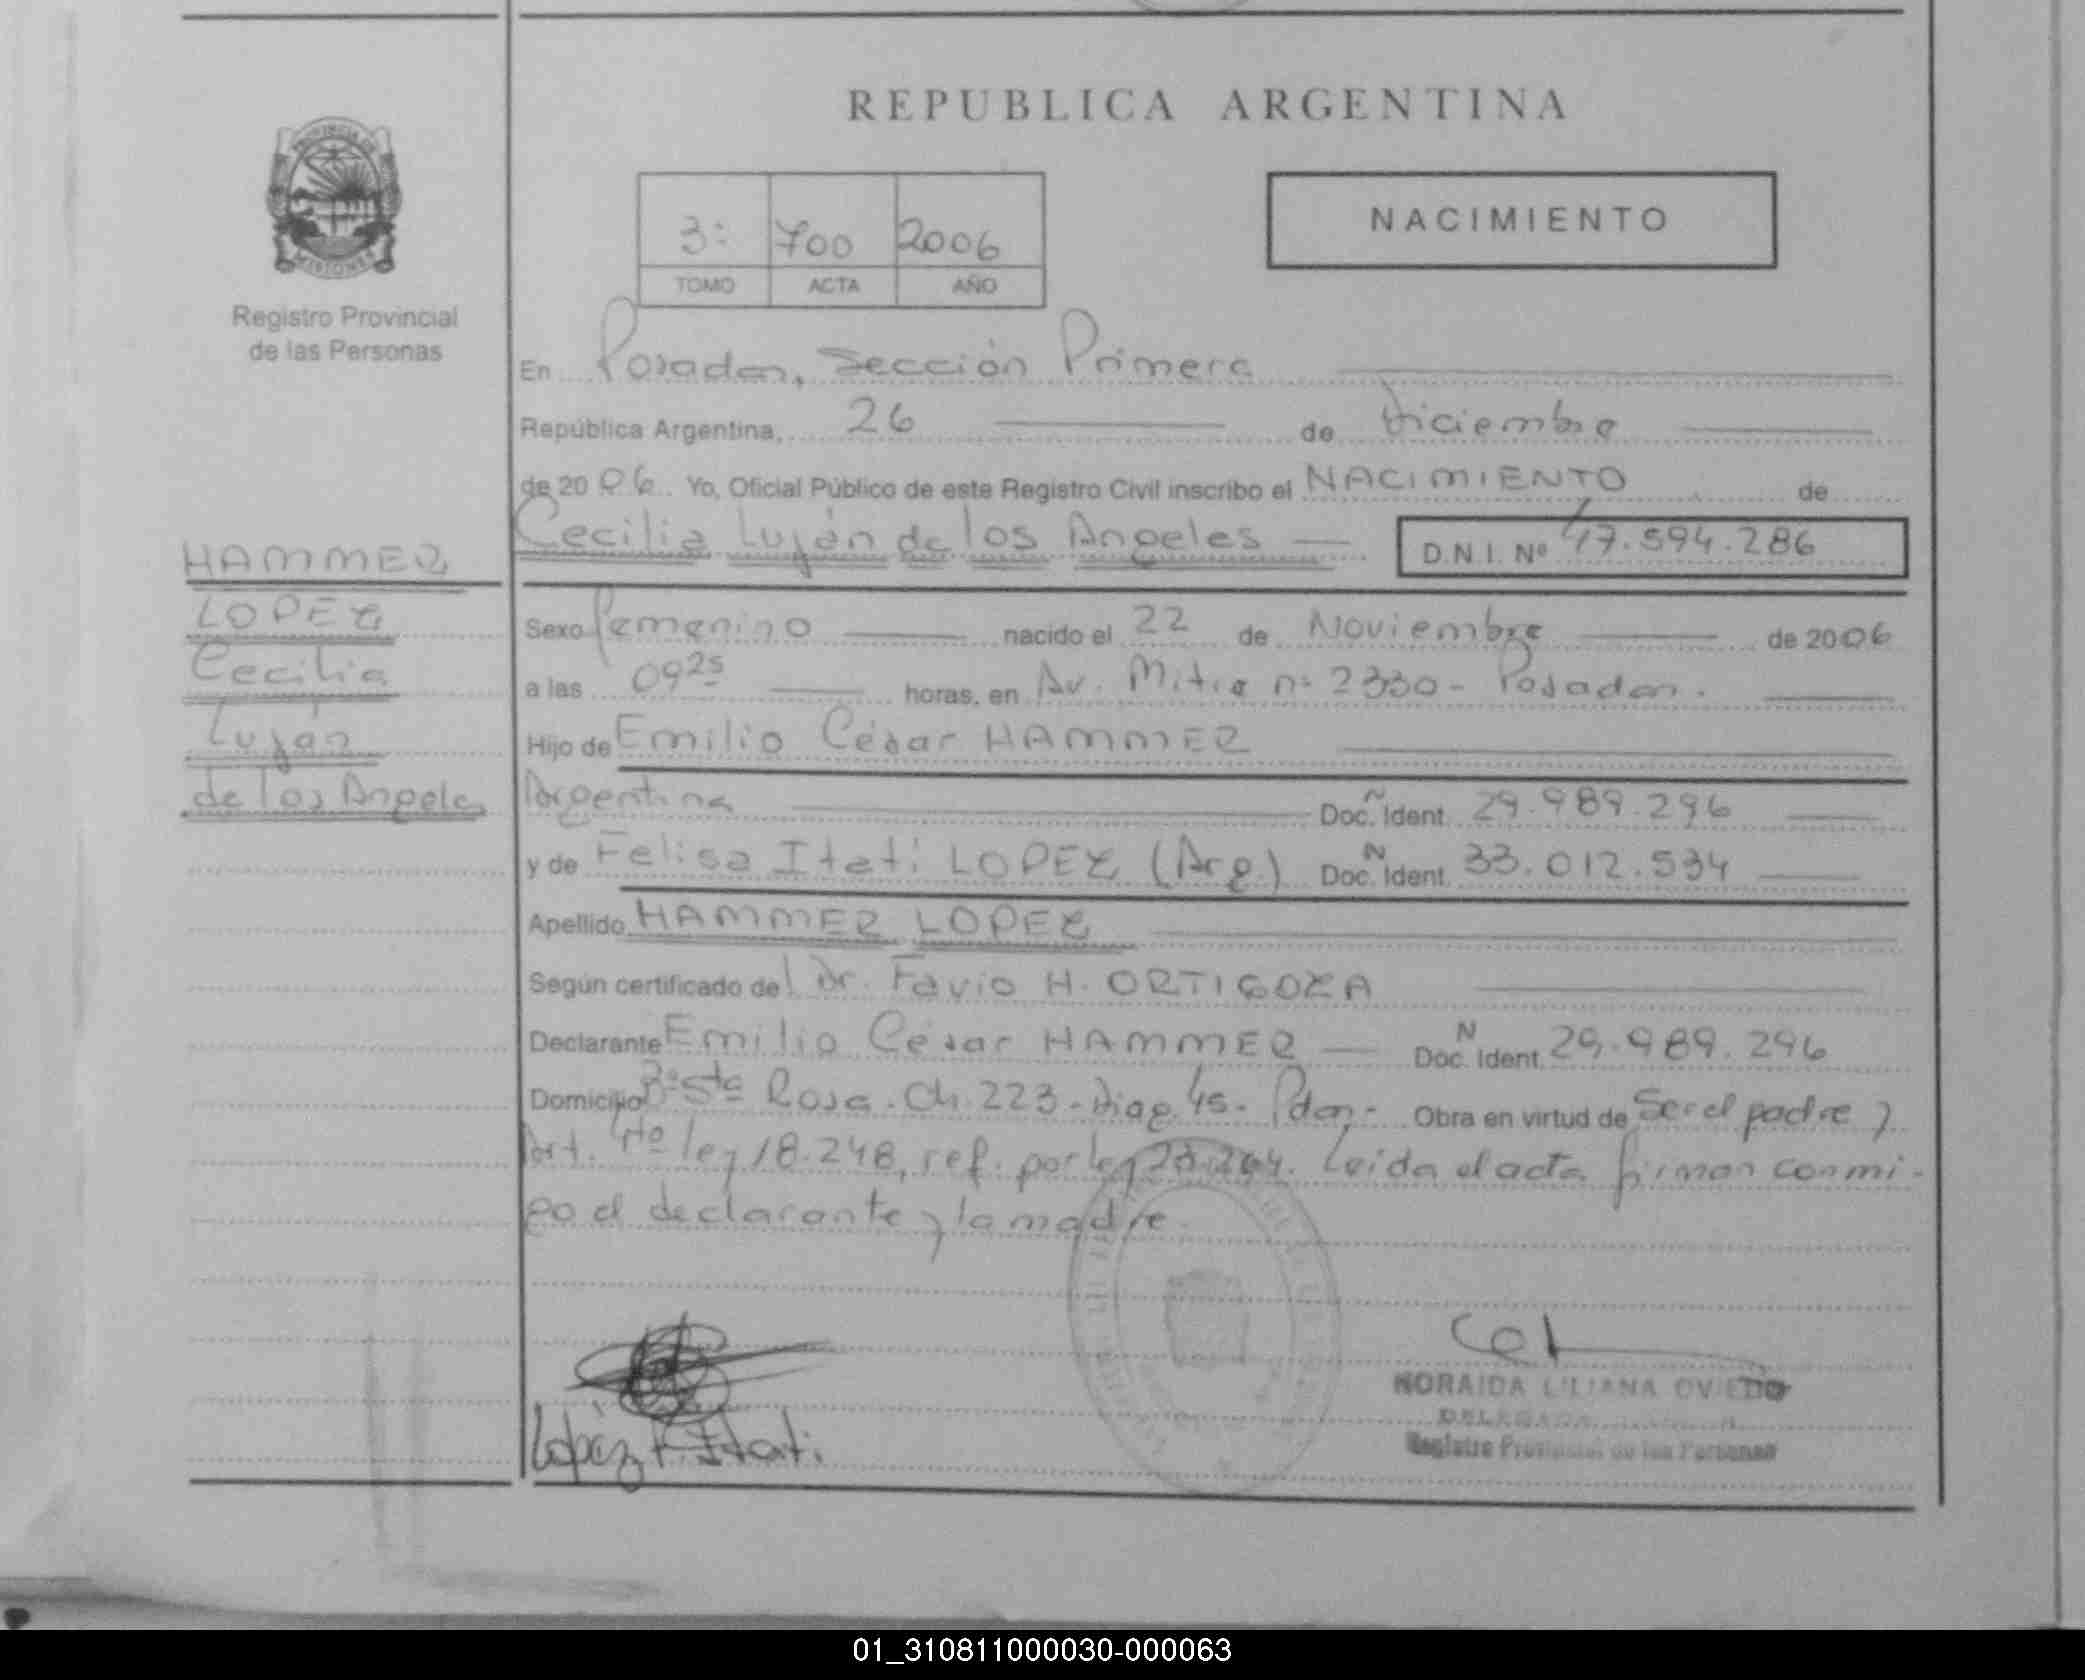 REPUBLICA ARGENTINA
PROVINCIA DE
MISIONES
Registro Provincial
de las Personas
3º 700 2006
TOMO ACTA AÑO
NACIMIENTO
En Posadas, Sección Primera
República Argentina, 26 de Diciembre
de 2006 Yo, Oficial Público de este Registro Civil inscribo el NACIMIENTO de
Cecilia Luján de los Angeles
D.N.I. Nº 47.594.286
HAMMER
LOPEZ
Cecilia
Luján
de los Angeles
Sexo femenino nacido el 22 de Noviembre de 2006
a las 09 25 horas, en Av. Mitre nº 2330 - Posadas.
Hijo de Emilio César HAMMER
Argentina Doc. N Ident. 29.989.296
y de Felisa Itatí LOPEZ (Arg.) Doc. N Ident. 33.012.534
Apellido HAMMER LOPEZ
Según certificado del Dr. Favio H. ORTIGOZA
Declarante Emilio César HAMMER Doc. N Ident. 29.989.296
Domicilio Bº Sta Rosa. Ch. 223 - Diag. 45 - Pdas - Obra en virtud de Ser el padre y
Art. 4to ley 18.248, ref. por ley 23.264. Leída el acta firman conmi-
go el declarante y la madre.
López F. Itatí.
NORAIDA LILIANA OVIEDO
DELEGADA
Registro Provincial de las Personas
01_310811000030-000063